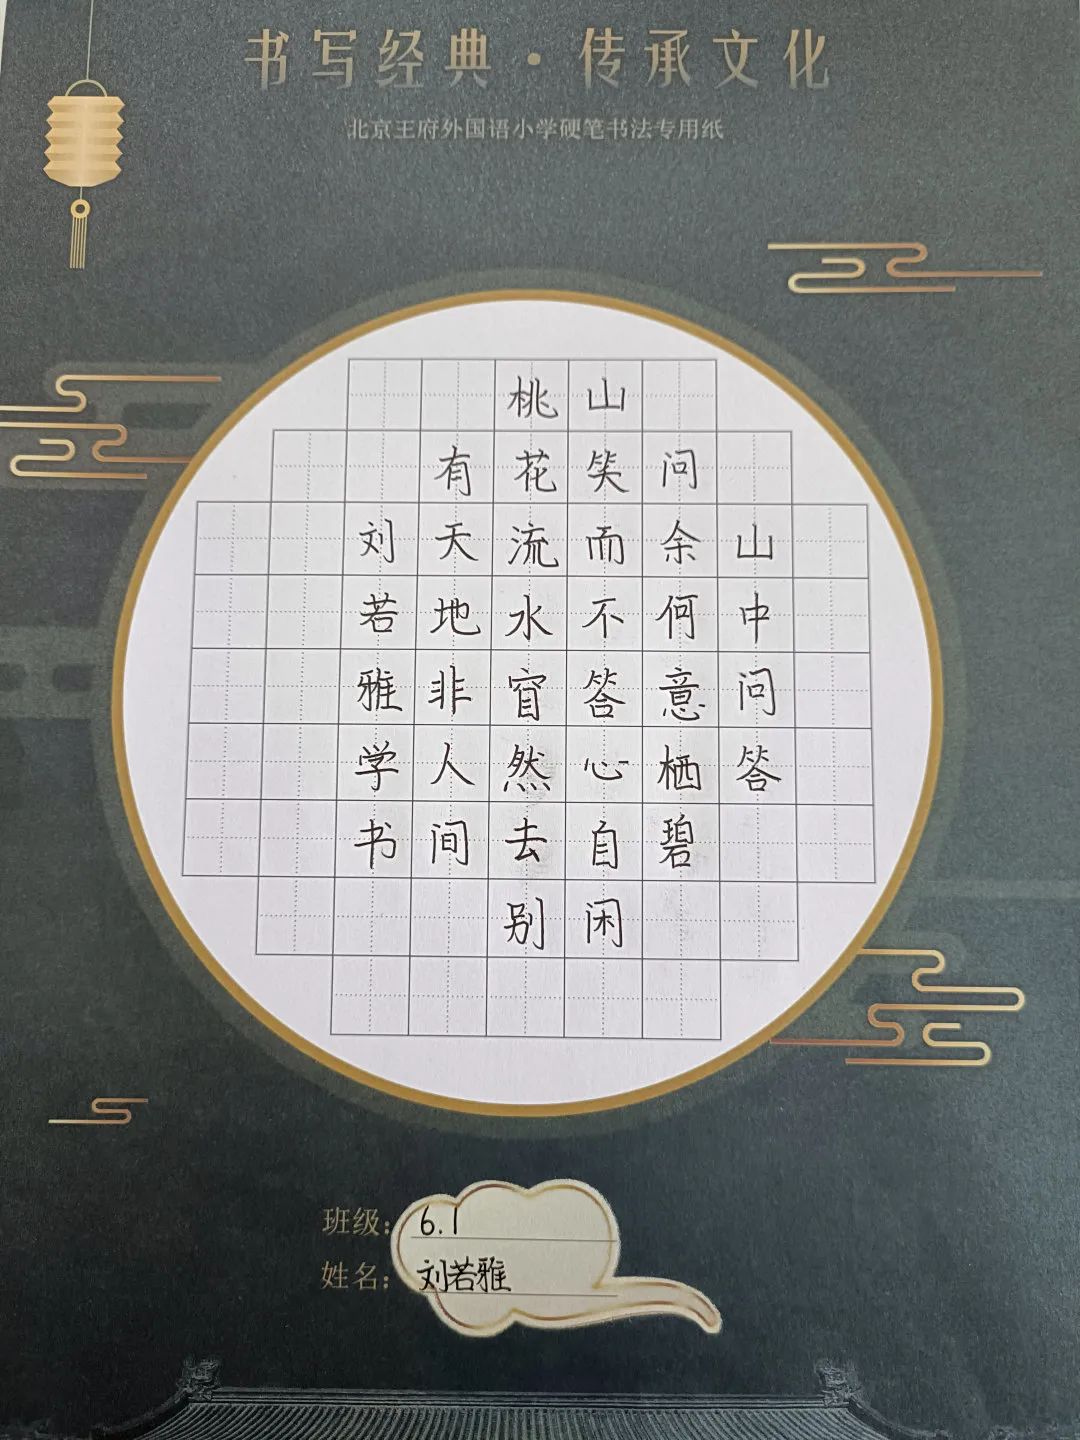 书写经典·传承文化
北京王府外国语小学硬笔书法专用纸
山中问答
问余何意栖碧
山笑而不答心自闲
桃花流水窅然去别
有天地非人间
刘若雅学书
班级：6.1
姓名：刘若雅